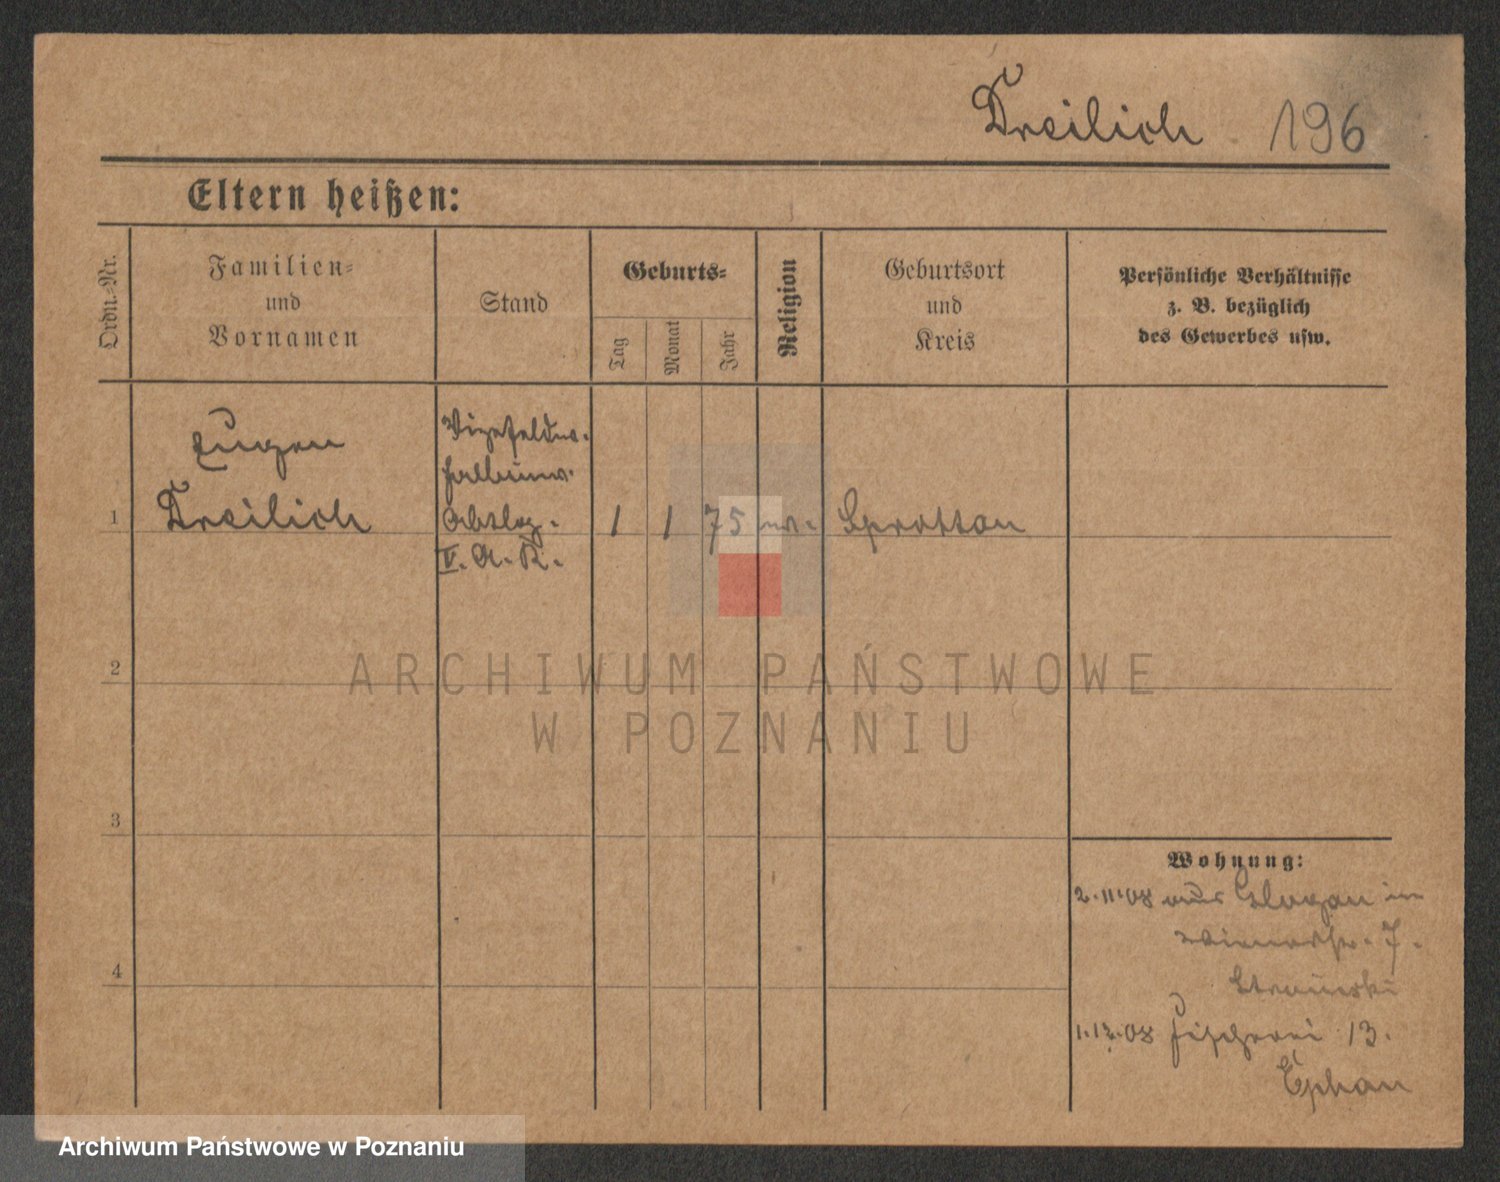 Dreilich 196
Eltern heißen:
Ordn.-Nr.
Familien-
und
Vornamen
Stand
Geburts-
Tag
Monat
Jahr
Religion
Geburtsort
und
Kreis
Persönliche Verhältnisse
z. B. bezüglich
des Gewerbes usw.
Eugen
Dreilich
Vizefeldw.
Halbinv.
Abtlg.
V. A. K.
1
1 1 75 ev. Sprottau
2
3
4
ARCHIWUM PAŃSTWOWE
W POZNANIU
Wohnung:
2.11.08 aus Glogau in
7.
1.12.08 Fischerei 13.
Archiwum Państwowe w Poznaniu